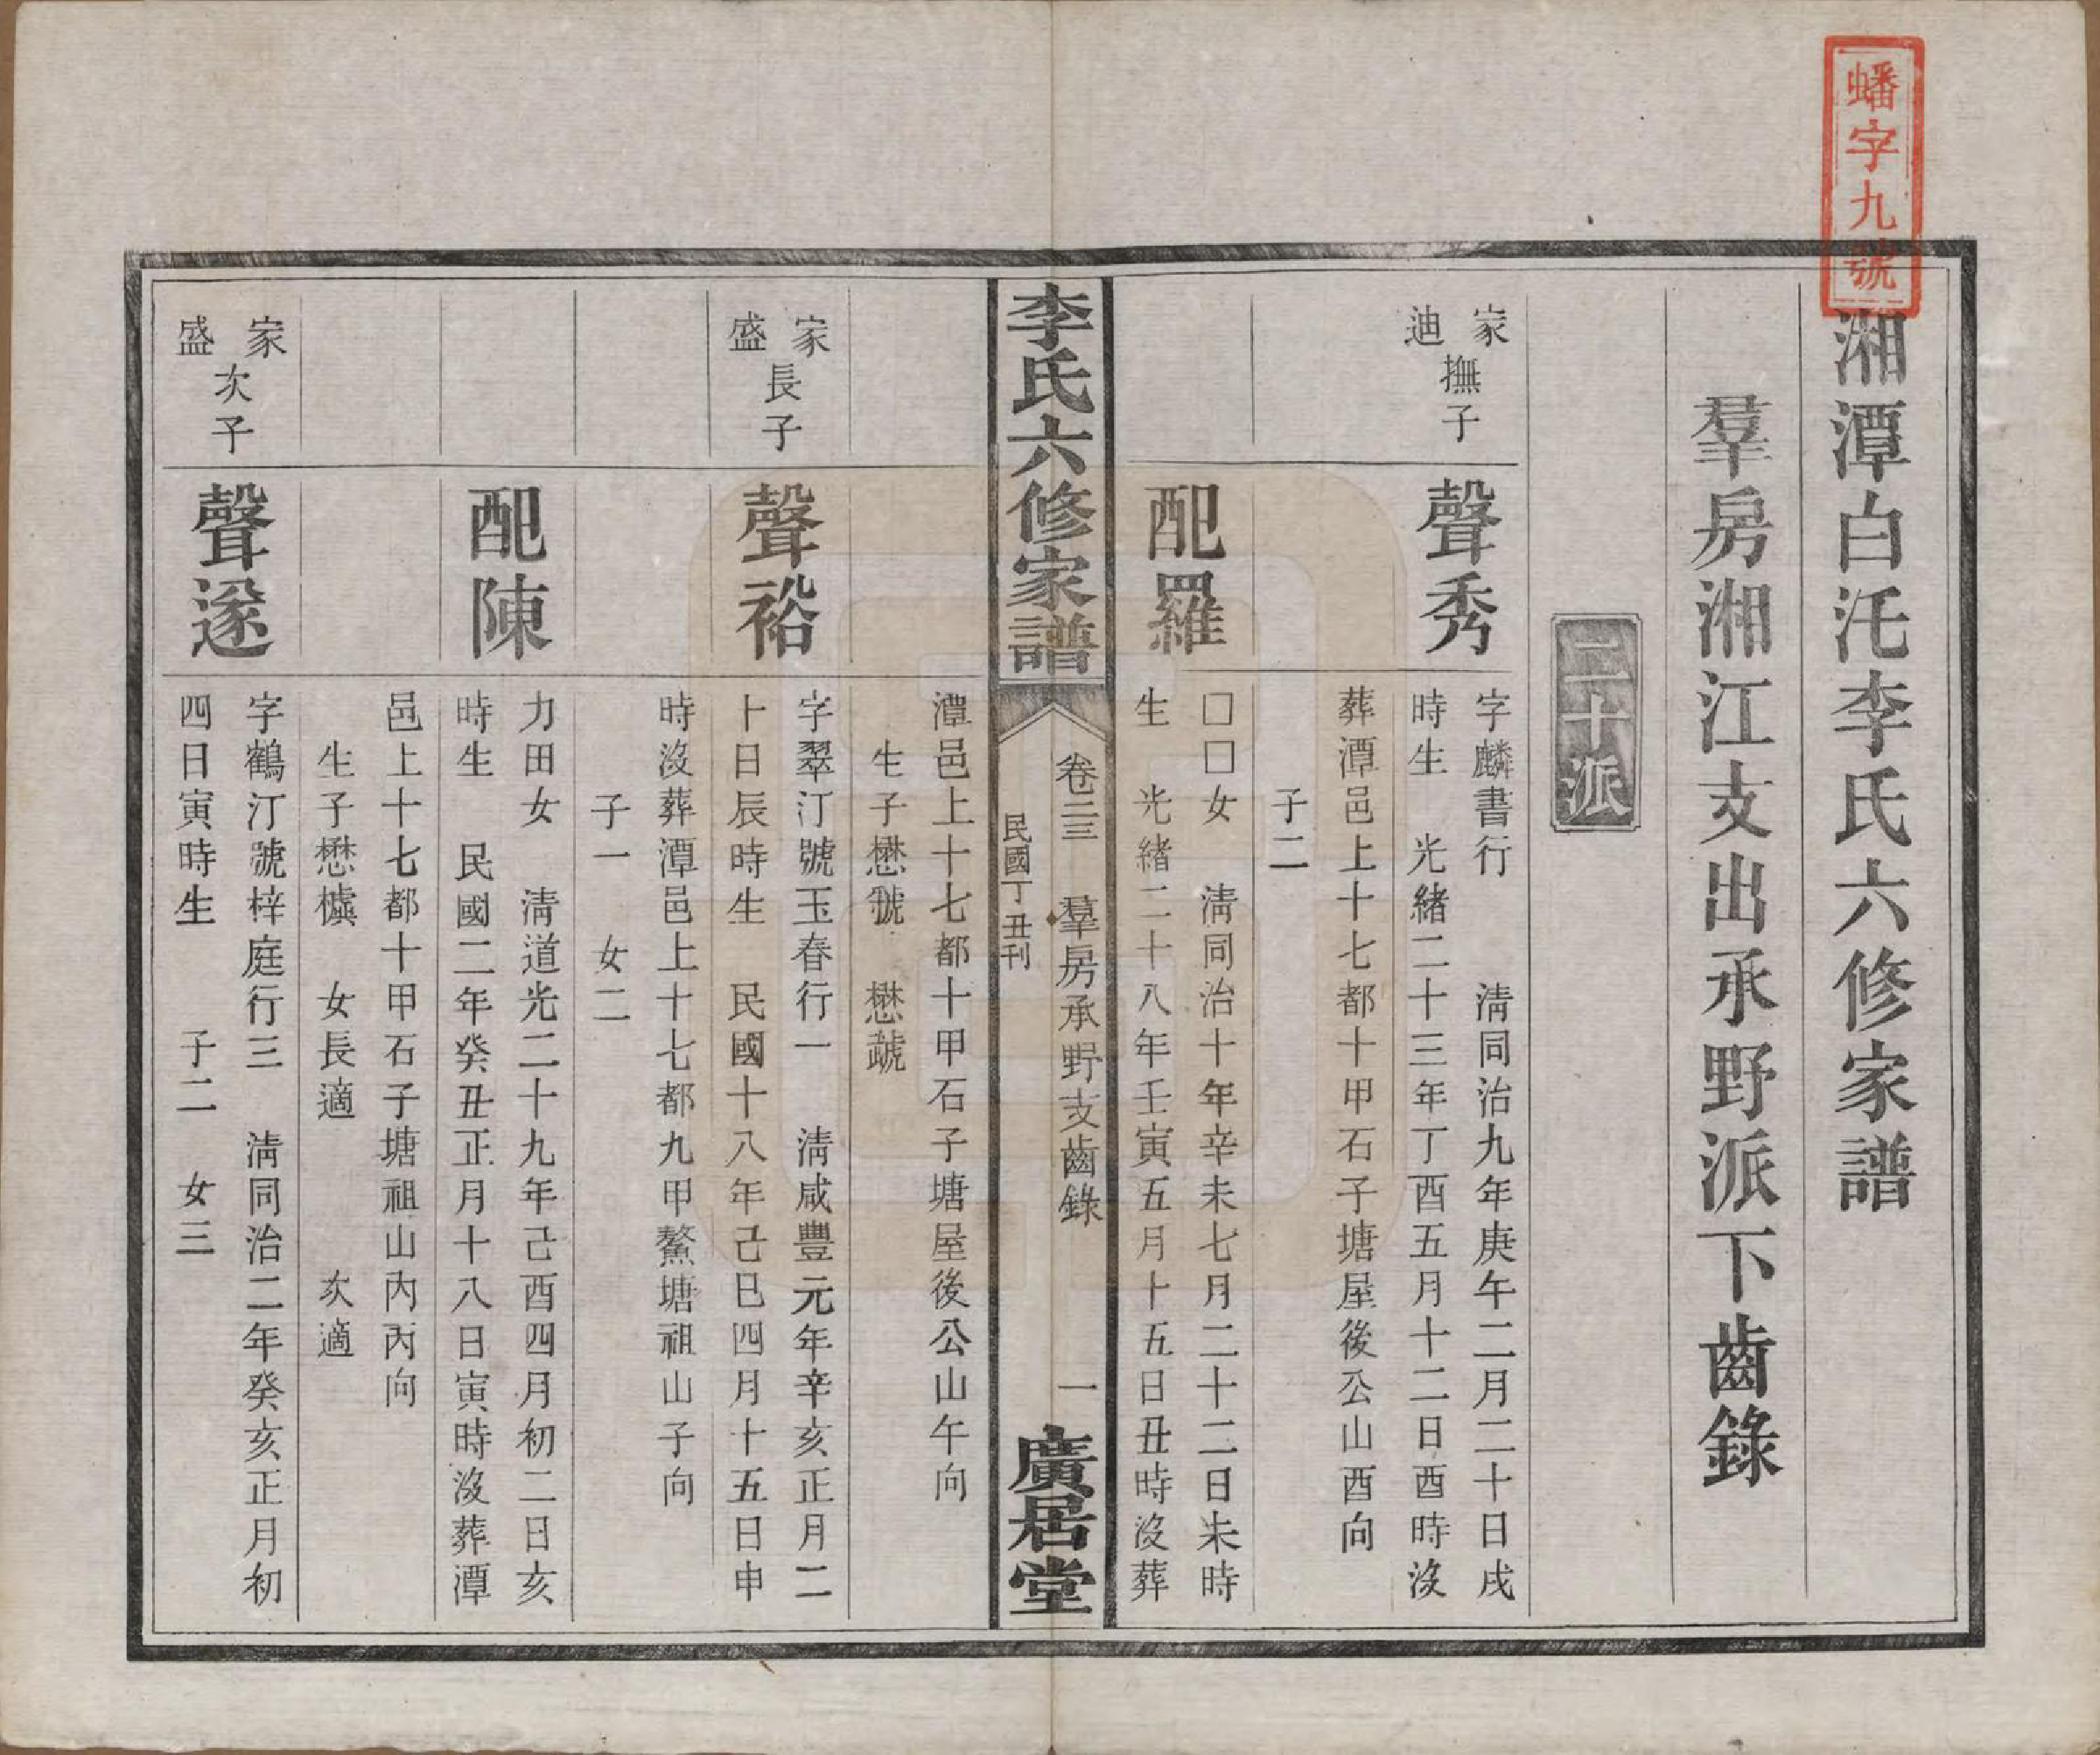 蟠字九號
湘潭白汑李氏六修家譜
羣房湘江支出承野派下齒錄
二十派
家迪撫子
聲秀
字麟書行 淸同治九年庚午二月二十日戌
時生 光緖二十三年丁酉五月十二日酉時沒
葬潭邑上十七都十甲石子塘屋後公山酉向
子二
配羅
□□女 淸同治十年辛未七月二十二日未時
生 光緖二十八年壬寅五月十五日丑時沒葬
李氏六修家譜
卷二三 羣房承野支齒錄 一
民國丁丑刊
廣居堂
潭邑上十七都十甲石子塘屋後公山午向
生子懋 懋
家盛長子
聲裕
字翠汀號玉春行一 淸咸豐元年辛亥正月二
十日辰時生 民國十八年己巳四月十五日申
時沒葬潭邑上十七都九甲鰲塘祖山子向
子一 女二
配陳
力田女 淸道光二十九年己酉四月初二日亥
時生 民國二年癸丑正月十八日寅時沒葬潭
邑上十七都十甲石子塘祖山內丙向
生子懋櫖 女長適 次適
家盛次子
聲遂
字鶴汀號梓庭行三 淸同治二年癸亥正月初
四日寅時生 子二 女三